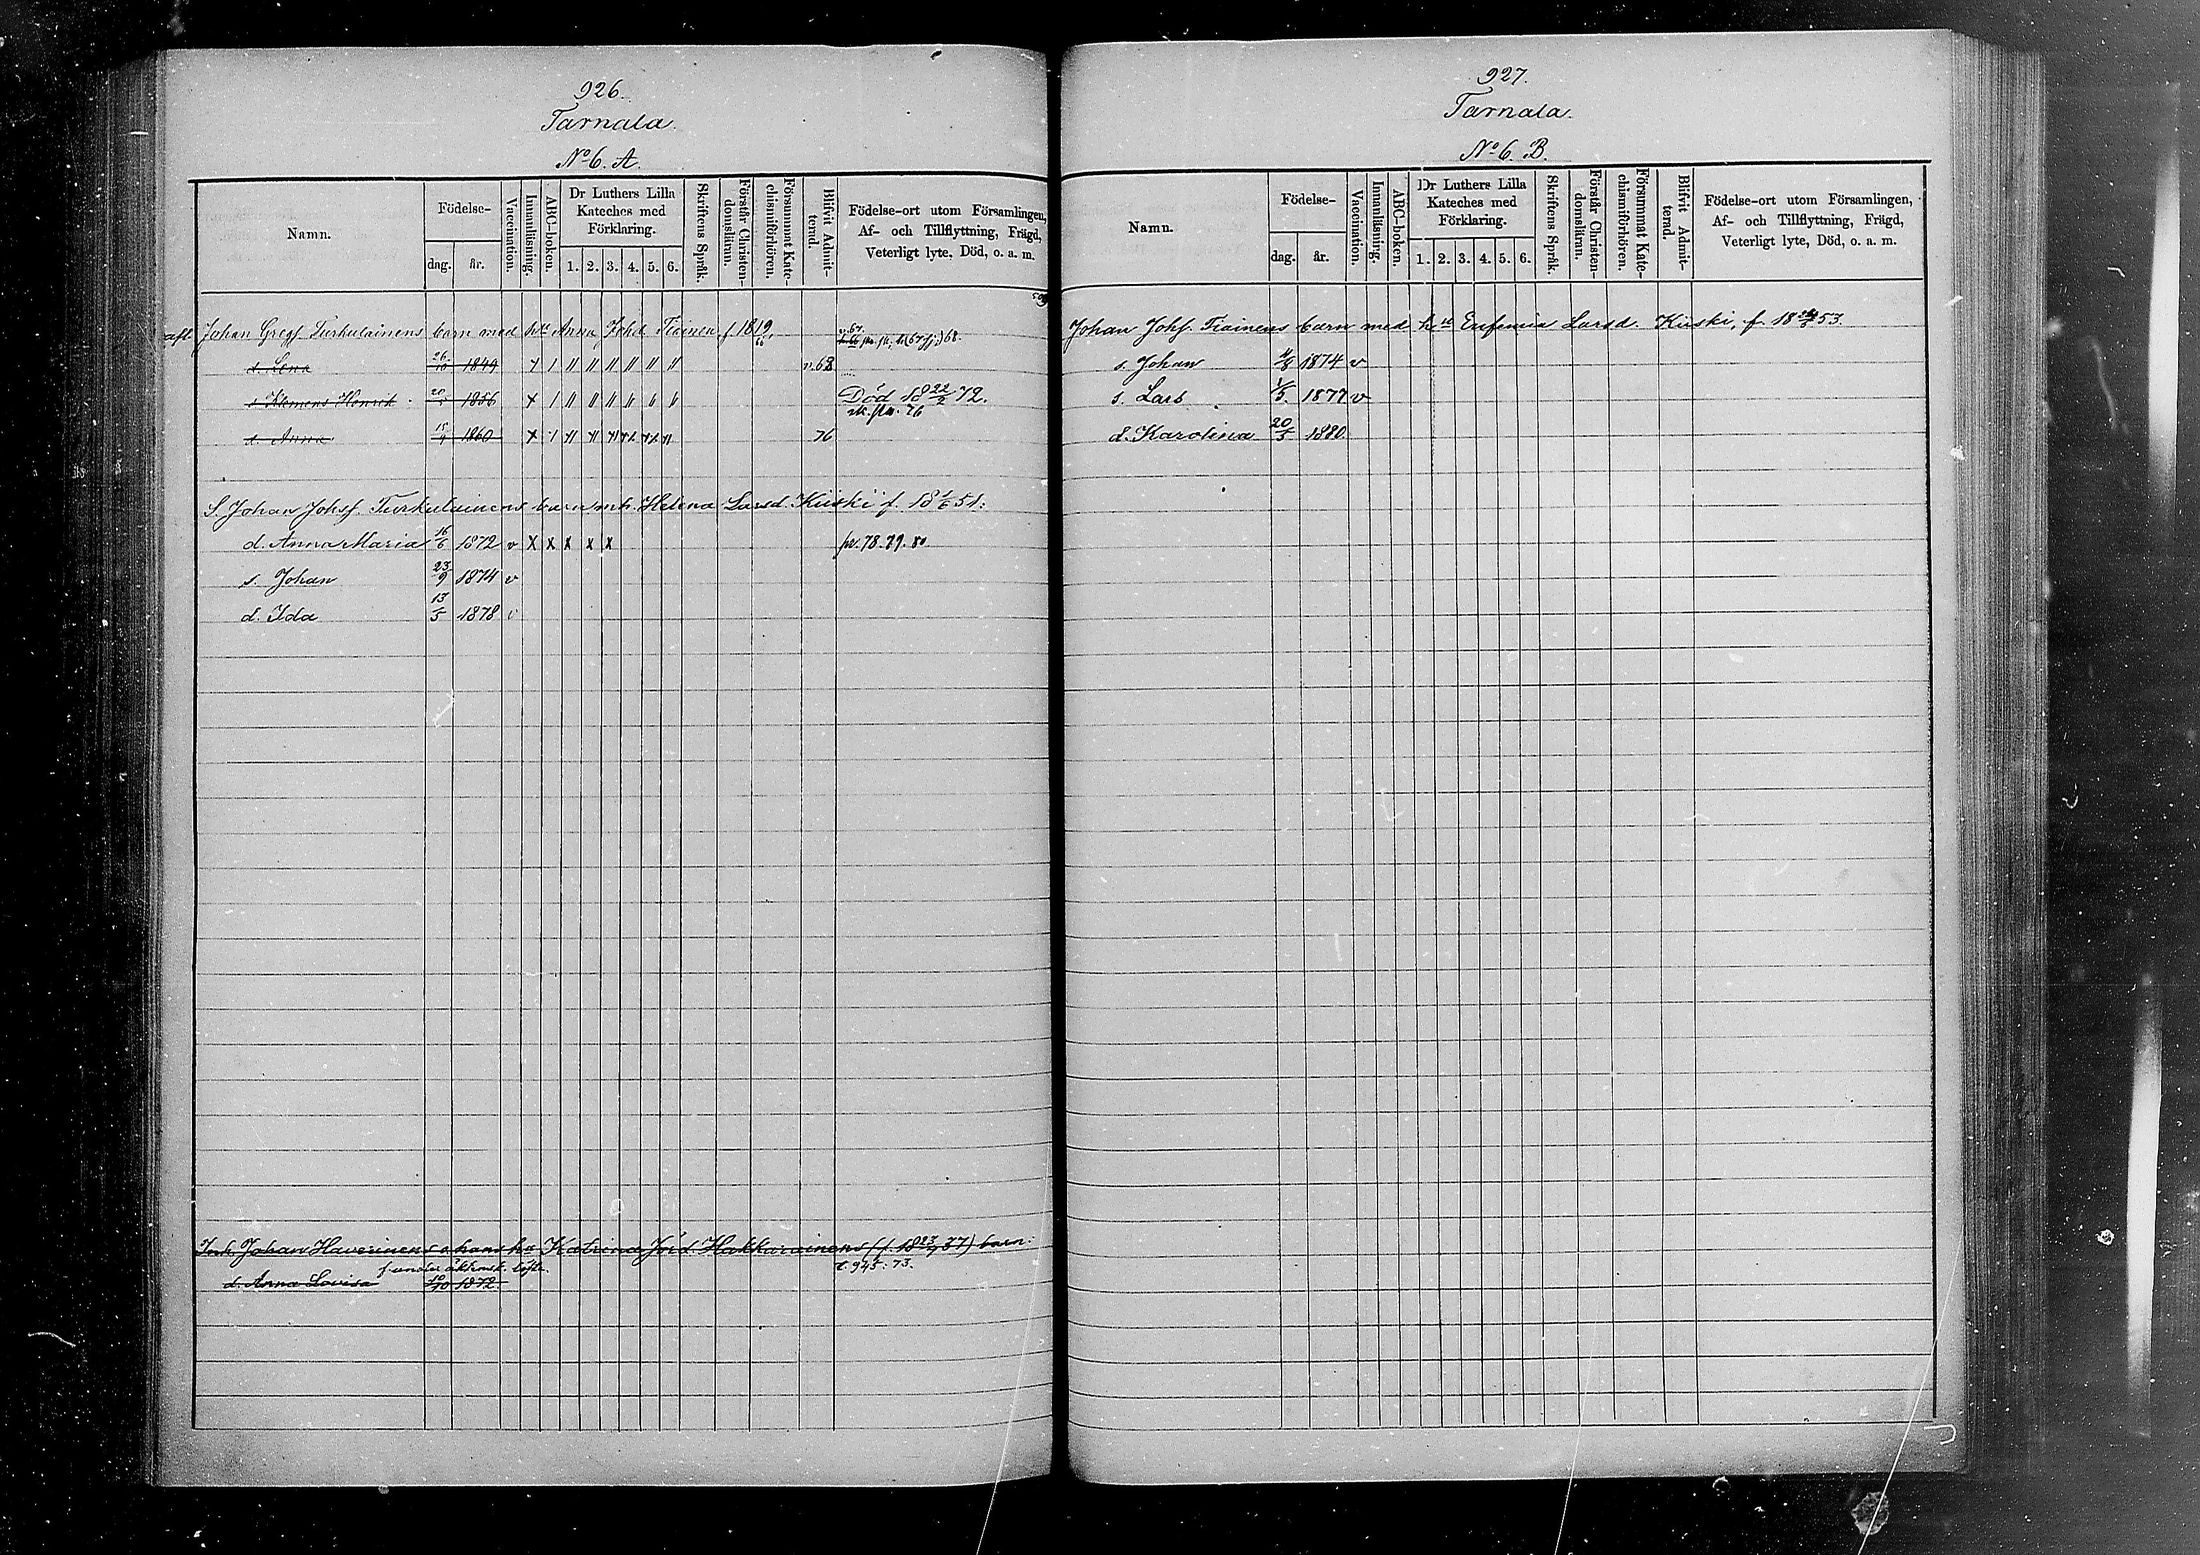 926.
Tarnala.
No 6. A.
Namn.
Födelse-
dag. år.
Vaccination.
Innanläsning.
ABC-boken.
Dr Luthers Lilla Kateches med Förklaring.
1. 2. 3. 4. 5. 6.
Skriftens Språk.
Förstår Christendomsläran.
Försummat Katechismiförhören.
Blifvit Admitterad.
Födelse-ort utom Församlingen, Af- och Tillflyttning, Frägd, Veterligt lyte, Död, o. a. m.
afl. Johan Gregf. Turkulainens barn med h. Anna Johd. Tiainen f. 1819,
d. Lena 26/10 1849
s. Klemens Henrik 1856 Död 18 22/2 72.
d. Anna 1860 76
S. Johan Johsf. Turkulainens barn m h. Helena Larsd. Kiiski f. 18 1/6 51:
d. Anna Maria 16/6 1872 v x x x x x fr. 78. 79. 80
s. Johan 23/9 1874 v
d. Ida 13/5 1878 v
Johan Haverinens o hans hu Katrina Jörd. Hakkarainens (f. 18 37) barn:
d. Anna Lovisa 1872. t. 945. 73.
927.
Tarnala.
No 6. B.
Namn.
Födelse-
dag. år.
Vaccination.
Innanläsning.
ABC-boken.
Dr Luthers Lilla Kateches med Förklaring.
1. 2. 3. 4. 5. 6.
Skriftens Språk.
Förstår Christendomsläran.
Försummat Katechismiförhören.
Blifvit Admitterad.
Födelse-ort utom Församlingen, Af- och Tillflyttning, Frägd, Veterligt lyte, Död, o. a. m.
Johan Johsf. Tiainens barn med h. Eufemia Larsd. Kiiski, f. 18 53.
s. Johan 1874 v
s. Lars 1/5 1877 v
d. Karolina 20/5 1880